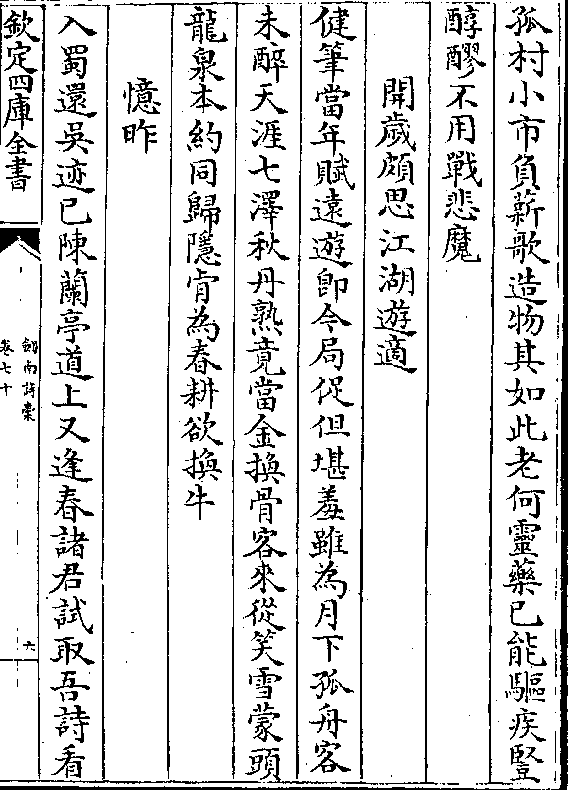 孤村小市負薪歌造物其如此老何靈藥已能驅疾豎
醇醪不用戰悲魔
開歲頗思江湖遊適
健筆當年賦遠遊即今局促但堪羞雖為月下孤舟客
未醉天涯七澤秋丹熟竟當金換骨客來從笑雪蒙頭
龍泉本約同歸隱肯為春耕欲換牛
憶昨
入蜀還吳迹已陳蘭亭道上又逢春諸君試取吾詩看
欽定四庫全書
劒南詩稾
卷七十
六